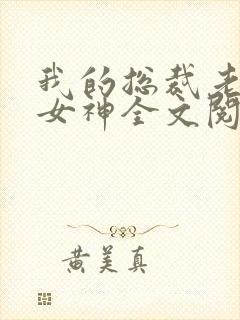 我的总裁老
女神全文阅
黄美真